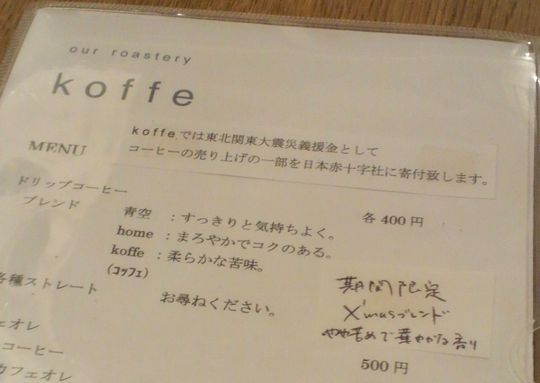 our roastery
koffe
koffe.では東北関東大震災義援金として
コーヒーの売り上げの一部を日本赤十字社に寄付致します。
MENU
ドリップコーヒー
ブレンド
各 400 円
青空 : すっきりと気持ちよく。
home : まろやかでコクのある。
koffe : 柔らかな苦味。
(コッフェ)
各種ストレート
お尋ねください。
期間限定
X'masブレンド
やや苦めで華やかな香り
ェオレ
コーヒー
500 円
カフェオレ